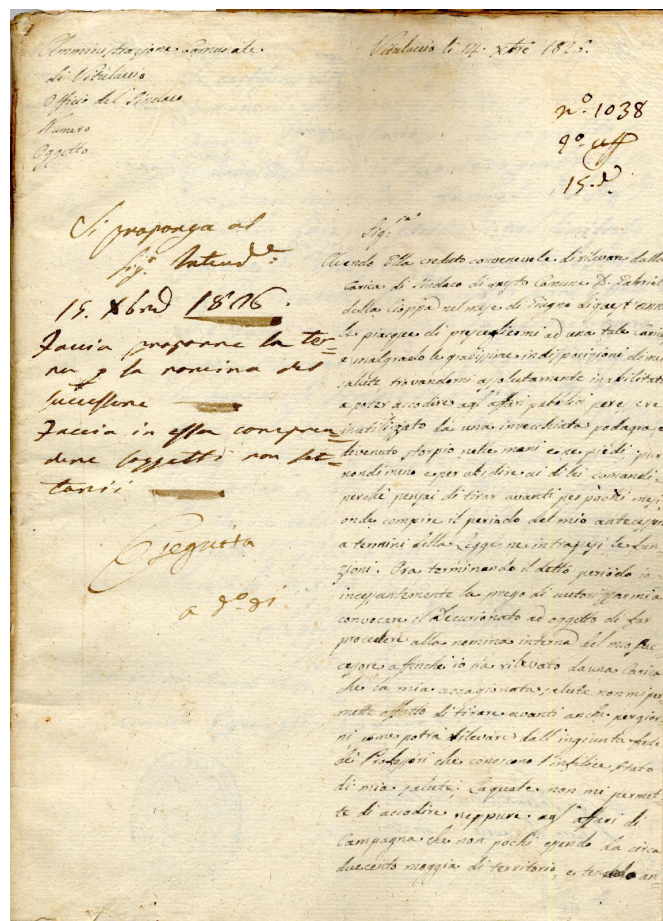 Amministrazione Comunale
di Vitulaccio
Officio del Sindaco
Numero
Oggetto
Vitulaccio li 14. Xbre 1826.
n.º 1038
2º uff
15. d.º
Si proponga al
Sig.r Intend.e
15. Xbre 1826.
Faccia proporre la ter=
na p la nomina del
successore
Faccia in essa compren=
dere soggetti non set=
tarii
Eseguita
a dº dì
Sig.re
Avendo Ella creduto convenevole di rilevare dalla
Carica di Sindaco di questo Comune D. Gabriel
della Cioppa nel mese di Giugno di quest'anno
le piacque di prescegliermi ad una tale Carica
e malgrado le gravissime indisposizioni di mia
salute trovandomi assolutamente inabilitato
a poter accodire agl'affari pubblici per essere
inutilizzato da una invecchiata podagra, e
divenuto storpio nelle mani e ne' piedi, pur
nondimeno e per ubidire ai di lei comandi e
perchè pensai di tirar avanti per pochi mesi,
onde compire il periodo del mio antecessore
a termini della Legge ne intrapresi le fun
zioni. Ora terminando il detto periodo io
incessantemente la prego di autorizzarmi a
convocare il Decurionato ad oggetto di far
procedere alla nomina interna del mio suc
cessore affinchè io sia rilevato da una Carica
che la mia accagionata salute non mi per
mette affatto di tirare avanti anche per gior
ni come potrà rilevare dall'ingiunta fede
di Professori che conoscono l'infelice stato
di mia salute, la quale non mi permet=
te di accodire neppure agl'affari di
Campagna che non pochi essendo da circa
duecento moggia di territorio, e tenendo an=